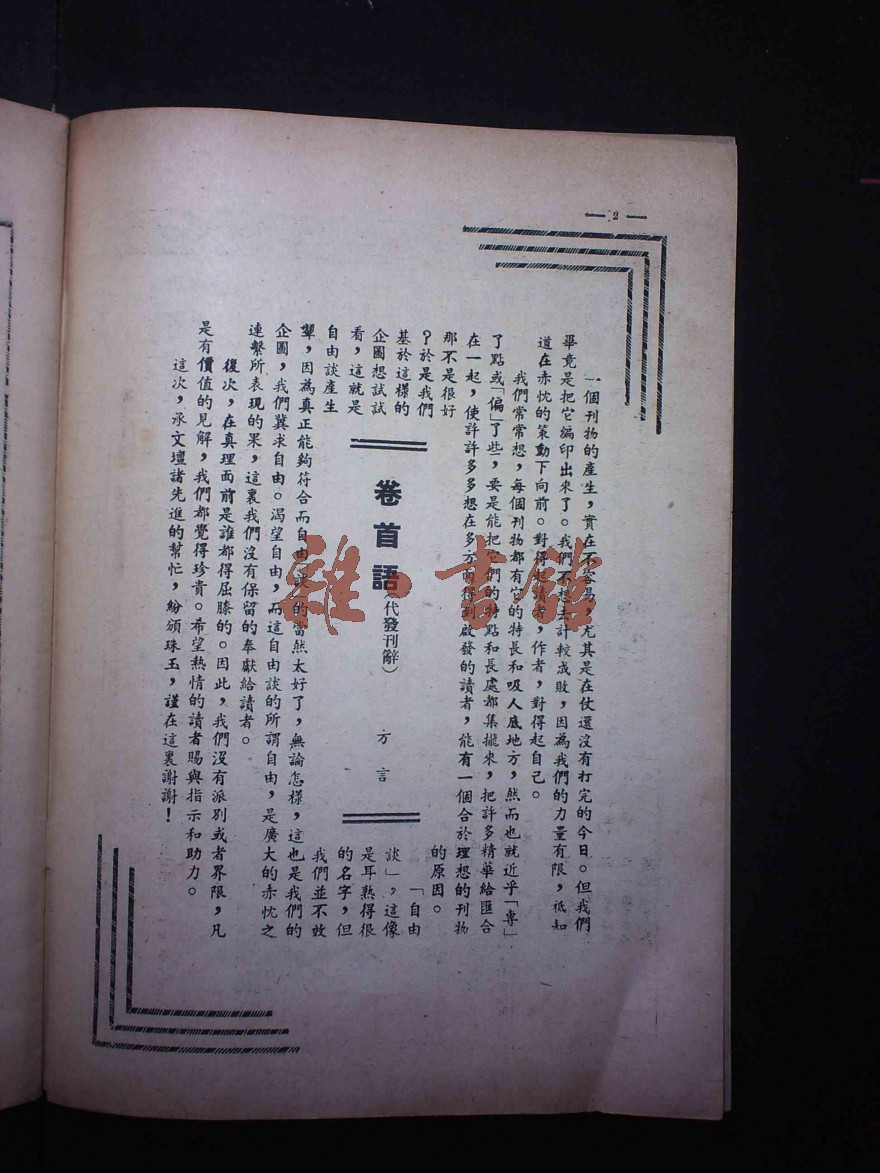 — 2 —
卷首語(代發刊辭)
方言
一個刊物的產生,實在不容易,尤其是在仗還沒有打完的今日。但我們
畢竟是把它編印出來了。我們不想去計較成敗,因為我們的力量有限,祗知
道在赤忱的策動下向前。對得起讀者,作者,對得起自己。
我們常常想,每個刊物都有它的特長和吸人底地方,然而也就近乎「專」
了點或「偏」了些,要是能把它們的特點和長處都集攏來,把許多精華給匯合
在一起,使許許多多想在多方面得到啟發的讀者,能有一個合於理想的刊物
那不是很好
?於是我們
基於這樣的
企圖想試試
看,這就是
自由談產生
的原因。
「自由
談」,這像
是耳熟得很
的名字,但
我們並不效
顰,因為真正能夠符合而自由談」的當然太好了,無論怎樣,這也是我們的
企圖,我們冀求自由。渴望自由,而這自由談的所謂自由,是廣大的赤忱之
連繫所表現的果,這裏我們沒有保留的奉獻給讀者。
復次,在真理面前是誰都得屈膝的。因此,我們沒有派別或者界限,凡
是有價值的見解,我們都覺得珍貴。希望熱情的讀者賜與指示和助力。
這次,承文壇諸先進的幫忙,紛頒珠玉,謹在這裏謝謝!
雜·書館